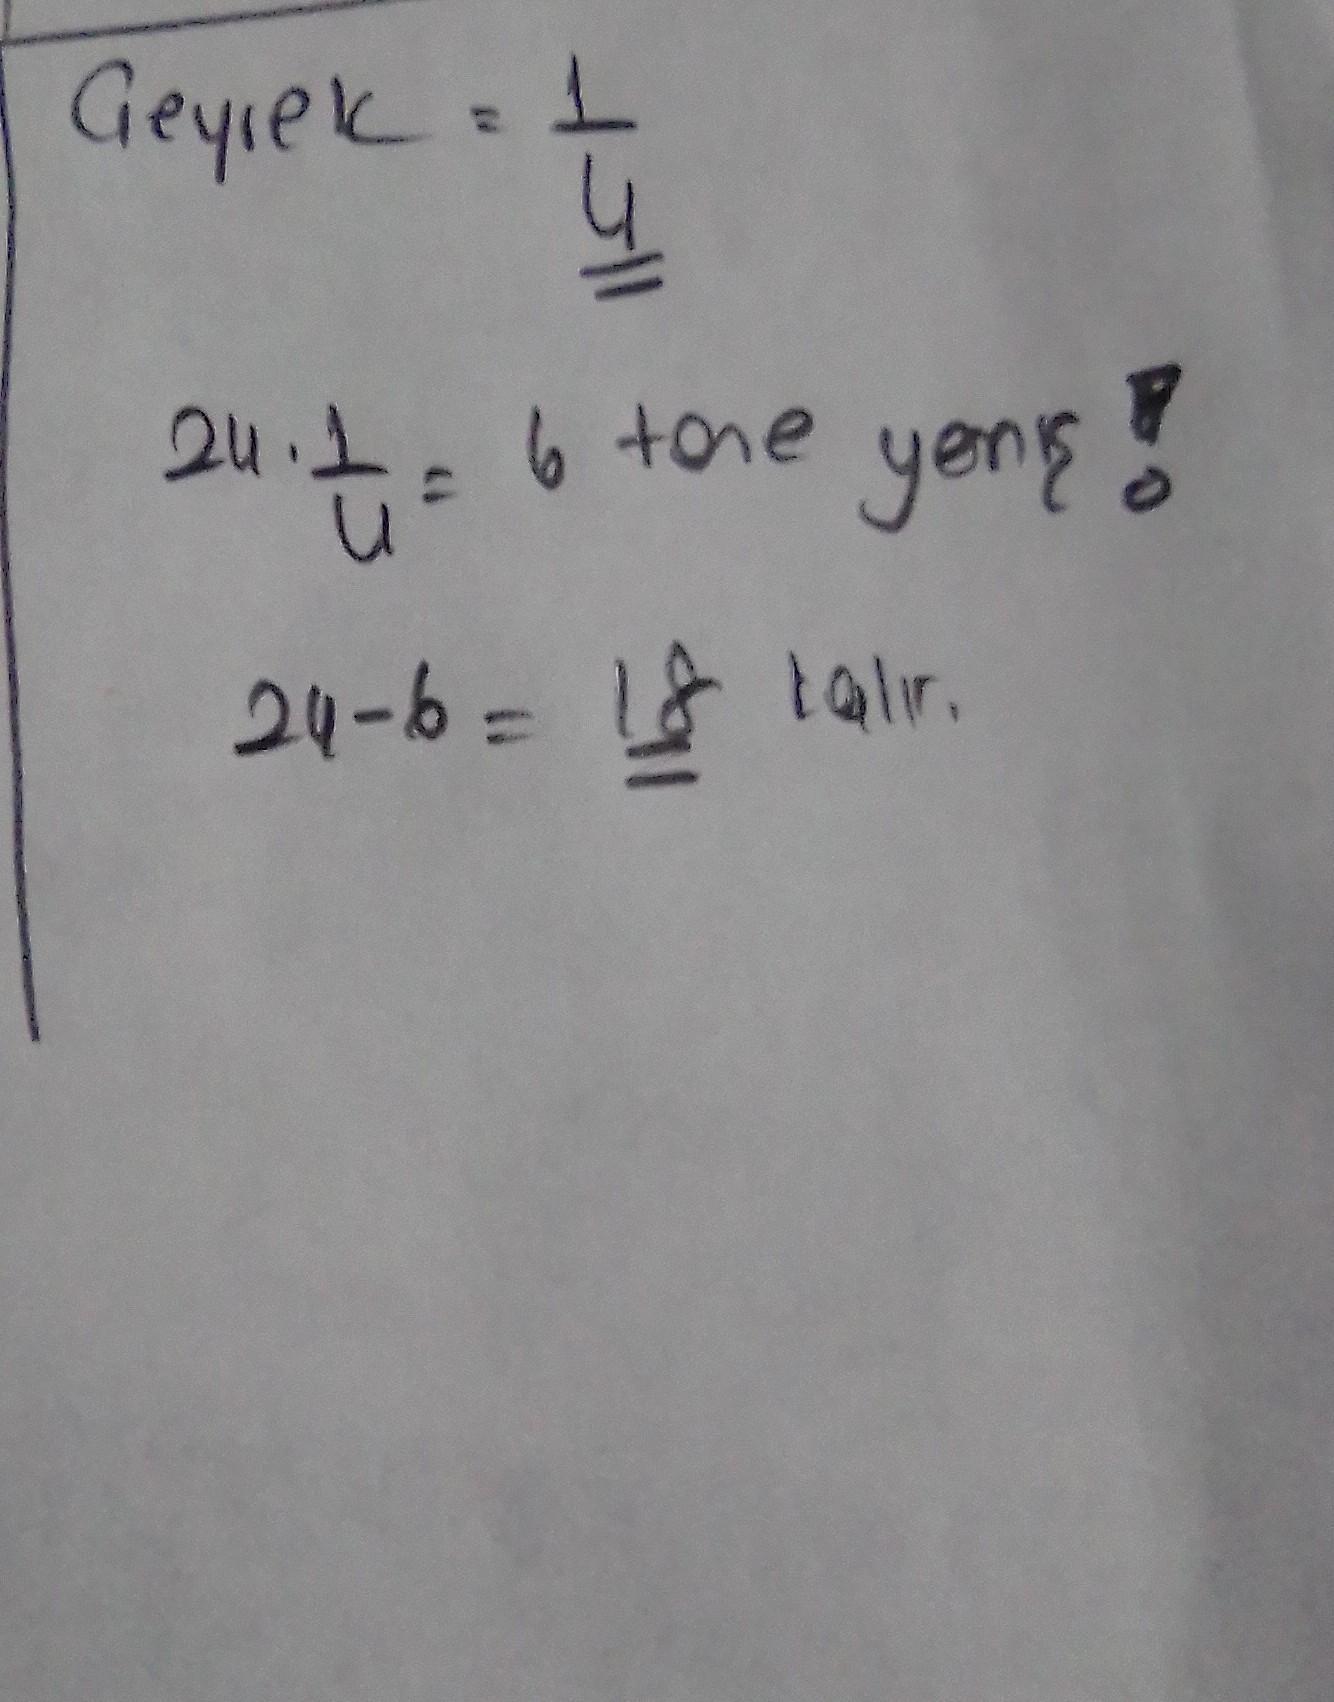 Geyrek = 1/4
24 . 1/4 = 6 tane yenş !
24 - 6 = 18 kalır.